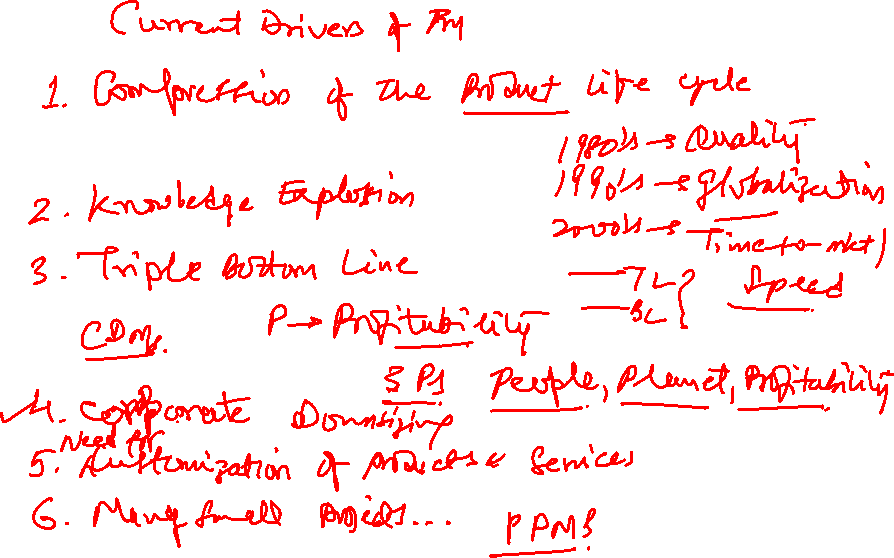 Current Drivers of PM
1. Compression of the Product life cycle
1980's → Quality
1990's → Globalization
2000's → Time-to-mkt)
Speed
2. Knowledge Explosion
3. Triple Bottom Line
TL
BL
P → Profitability
3 Ps People, Planet, Profitability
4. Corporate Downsizing
Need for
5. Customization of products & Services
6. Many small Projects...